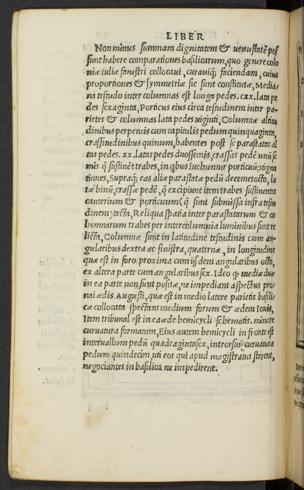 LIBER
Non minus summam dignitatem & venustatē pos
sunt habere comparationes basilicarum, quo genere colo
niæ iuliæ fanestri collocavi, curaviq; faciendam, cuius
proportiones & symmetriæ sic sunt constitutæ, Media/
na testudo inter columnas est longa pedes. cxx. lata pe
des sexaginta, Porticus eius circa testudinem inter pa
rietes & columnas lata pedes viginti, Columnæ altitu
dinibus perpetuis cum capitulis pedum quinquaginta,
crassitudinibus quinum, habentes post se parastatas al
tas pedes. xx. latas pedes duos semis, crassas pedē unū se
mis q̄ sustinēt trabes, in q̄bus invehuntur porticuū cōtigna
tiones, Supraq; eas aliæ parastatæ pedū decemocto, la
tæ binū, crassæ pedē, q̄ excipiunt item trabes sustinentes
canterium & porticum, q̄ sunt submissa infra testu
dinem, tecta, Reliqua spatia inter parastatarum & co
lumnarum trabes per intercolumnia luminibus sunt re
licta, Columnæ sunt in latitudine testudinis cum an
gularibus dextra ac sinistra, quaternæ, in longitudine
quæ est in foro proxima cum iisdem angularibus octo,
ex altera parte cum angularibus sex. Ideo q̄ mediæ duæ
in ea parte non sunt positæ, ne impediant aspectus pro
nai ædis Augusti, quæ est in medio latere parietis basili
cæ collocata spectans medium forum & ædem Iovis,
Item tribunal est in ea æde hemicycli schematis minore
curvatura formatum, Eius autem hemicycli in fronte est
intervallum pedū quadraginta sex, introrsus curvatura
pedum quindecim, uti eos qui apud magistratus starent,
negociantes in basilica ne impedirent.